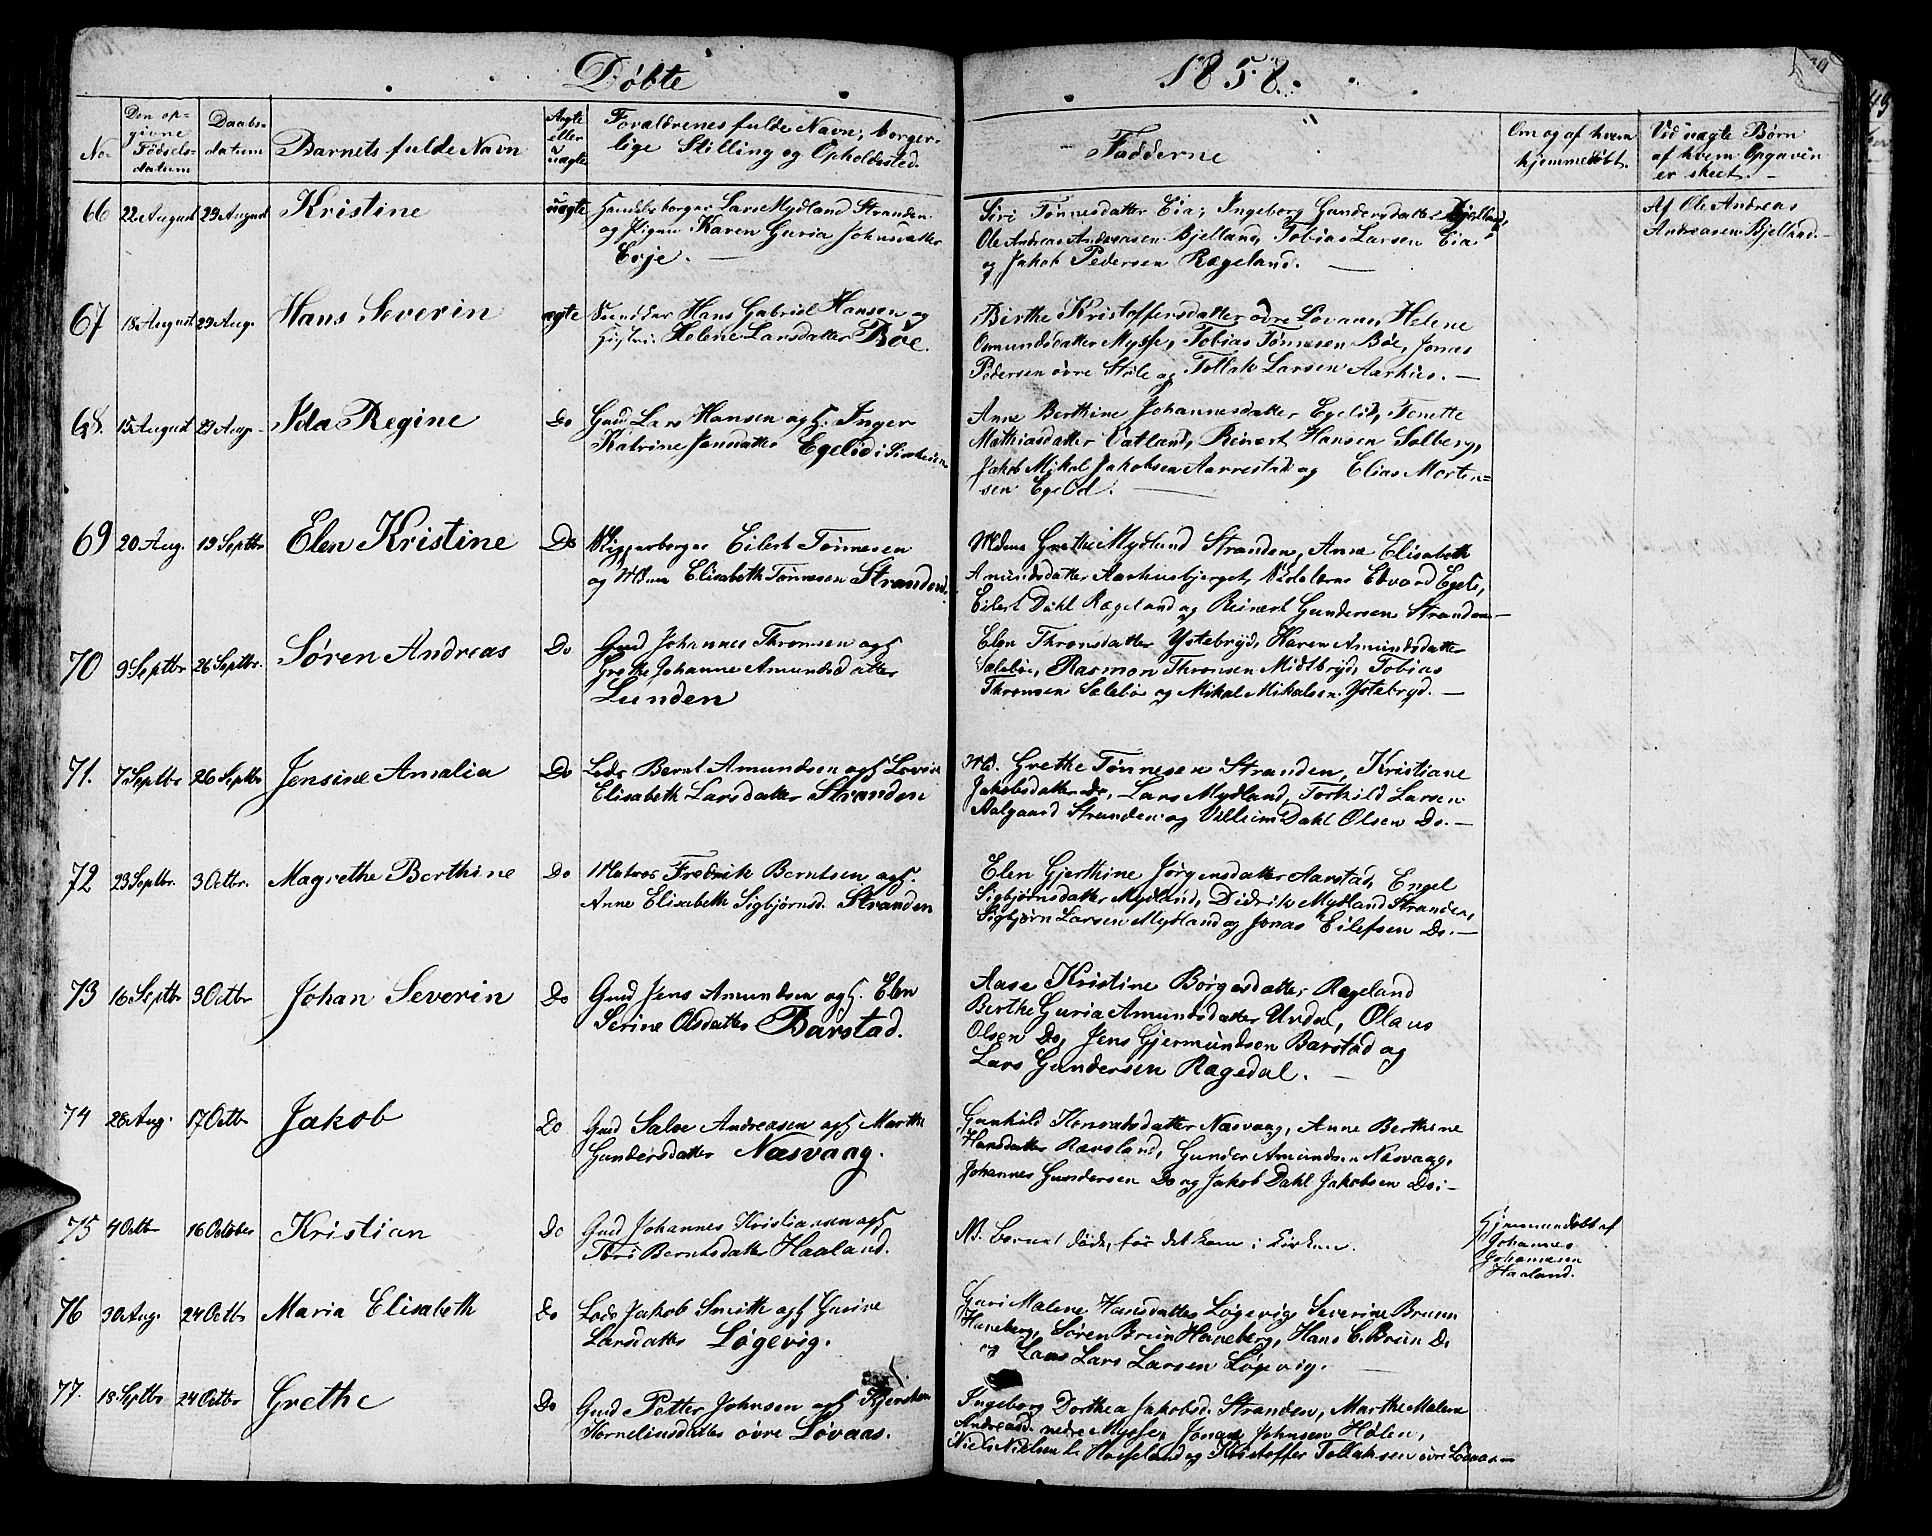 Døbte 1858.
No. | Den opgivne Fødselsdatum | Daabsdatum | Barnets fulde Navn | Ægte eller uægte | Forældrenes fulde Navn, borgerlige Stilling og Opholdssted. | Fadderne | Om og af hvem hjemmedøbt. | Ved uægte Børn af hvem Opgaven er skeet.
66 22 August 29 August Kristine uægte Handelsborger Lars Mydland Stranden
og Pigen Karen Guria Johnsdatter
Eeje.
Siri Tønnesdatter Eia, Ingeborg Gundersdatter Bjelland,
Ole Andreas Andreasen Bjelland, Tobias Larsen Eia
og Jakob Pedersen Rægeland.
Af Ole Andreas
Andreasen Bjelland.
67 18 August 29 Aug. Hans Severin ægte Hans Gabriel Hansen og
Hustru Helene Larsdatter Bøe.
Birthe Kristoffersdatter øvre Lovaas, Helene
Osmundsdatter Mysse, Tobias Tønnesen Bøe, Jonas
Pedersen øvre Støle og Tollak Larsen Aarhus.
68. 15 August 29 Aug. Ida Regine Do Gmd Lars Hansen og H. Inger
Katrine Jansdatter Egelid i
Anne Berthine Johannesdatter Egelid, Tonette
Mathiasdatter Vatland, Reinert Hansen Solberg,
Jakob Mikal Jakobsen Aarrestad og Elias Morten=
sen Egelid.
69 20 Aug. 19 Septbr Elen Kristine Do Skipperborger Eilert Tønnesen
og Mdm Elisabeth Tønnesen Stranden.
Mdme Grethe Mydland Stranden, Anne Elisabeth
Amundsdatter Aarhusbjerget, Edvard Egeli,
Eilert Dahl Rægeland og Reinert Gundersen Stranden
70 9 Septbr 26 Septbr. Søren Andreas Do Gmd Johannes Thronsen og H
Grethe Johanne Amundsdatter
Lunden
Elen Thronsdatter Ystebryd, Karen Amundsdatter
Saleböe, Rasmon Thronsen Midtbryd, Tobias
Thronsen Saleböe og Mikal Mikalsen Ystebryd.
71. 7 Septbr 26 Septbr Jensine Amalia Do Lods Bernt Amundsen og H Lovise
Elisabeth Larsdatter Stranden
Md. Grethe Tønnesen Stranden, Kristiane
Jakobsdatter Do, Lars Mydland, Torkild Larsen
Aalgaard Stranden og Villum Dahl Olsen Do.
72 23 Septbr. 3 Octbr. Magrethe Berthine Do Matros Fredrik Berntsen og H.
Anne Elisabeth Sigbjørnsd. Stranden
Elen Gjerthine Jørgensdatter Aarstad, Engel
Sigbjørnsdatter Mydland, Didrik Mydland Stranden,
Sigbjørn Larsen Mydland og Jonas Eilefsen Do.
73 16 Septbr 3 Octbr Johan Severin Do Gmd Jens Amundsen og H. Elen
Serine Olsdatter Barstad.
Aase Kristine Børgesdatter Rægeland
Berthe Guria Amundsdatter Urdal, Olaus
Olsen Do, Jens Gjermundsen Barstad og
Lars Gundersen Rægedal.
74 28 Aug. 17 Octb Jakob Do Gmd Salve Andreasen og H Marthe
Gundersdatter Næsvaag.
Gunhild Tonsatsdatter Næsvaag, Anne Berthine
Hansdatter Rævsland, Gunder Amundsen Næsvaag,
Johannes Gundersen Do og Jakob Dahl Jakobsen Do
75 4 Octbr 16 October Kristian Do Gmd Johannes Kristiansen og H
Tori Berntsdatter Haaland.
NB. Barnet døde, før det kom i Kirken.
Hjemmedøbt af
Johannes
Johannesen
Haaland.
76 30 Aug. 24 Octbr Maria Elisabeth Do Lods Jakob Smith og H Gurine
Larsdatter Løgevig.
Guri Malene Hansdatter Løgevig, Severine Bruun
Haneberg, Søren Bruun Haneberg, Hans C. Bruun Do
og Lars Larsen Løgevig.
77. 18 Septbr 24 Octbr Grethe Do Gmd Petter Johnsen og H Kjersten
Korneliusdatter øvre Løvaas.
Ingeborg Dorthea Jakobsd. Stranden, Marthe Malene
Andreasd. nedre Mysse, Jonas Johnsen Hølen,
Niels Nielsen Hosseland og Kristoffer Tollaksen øvre Løvaas